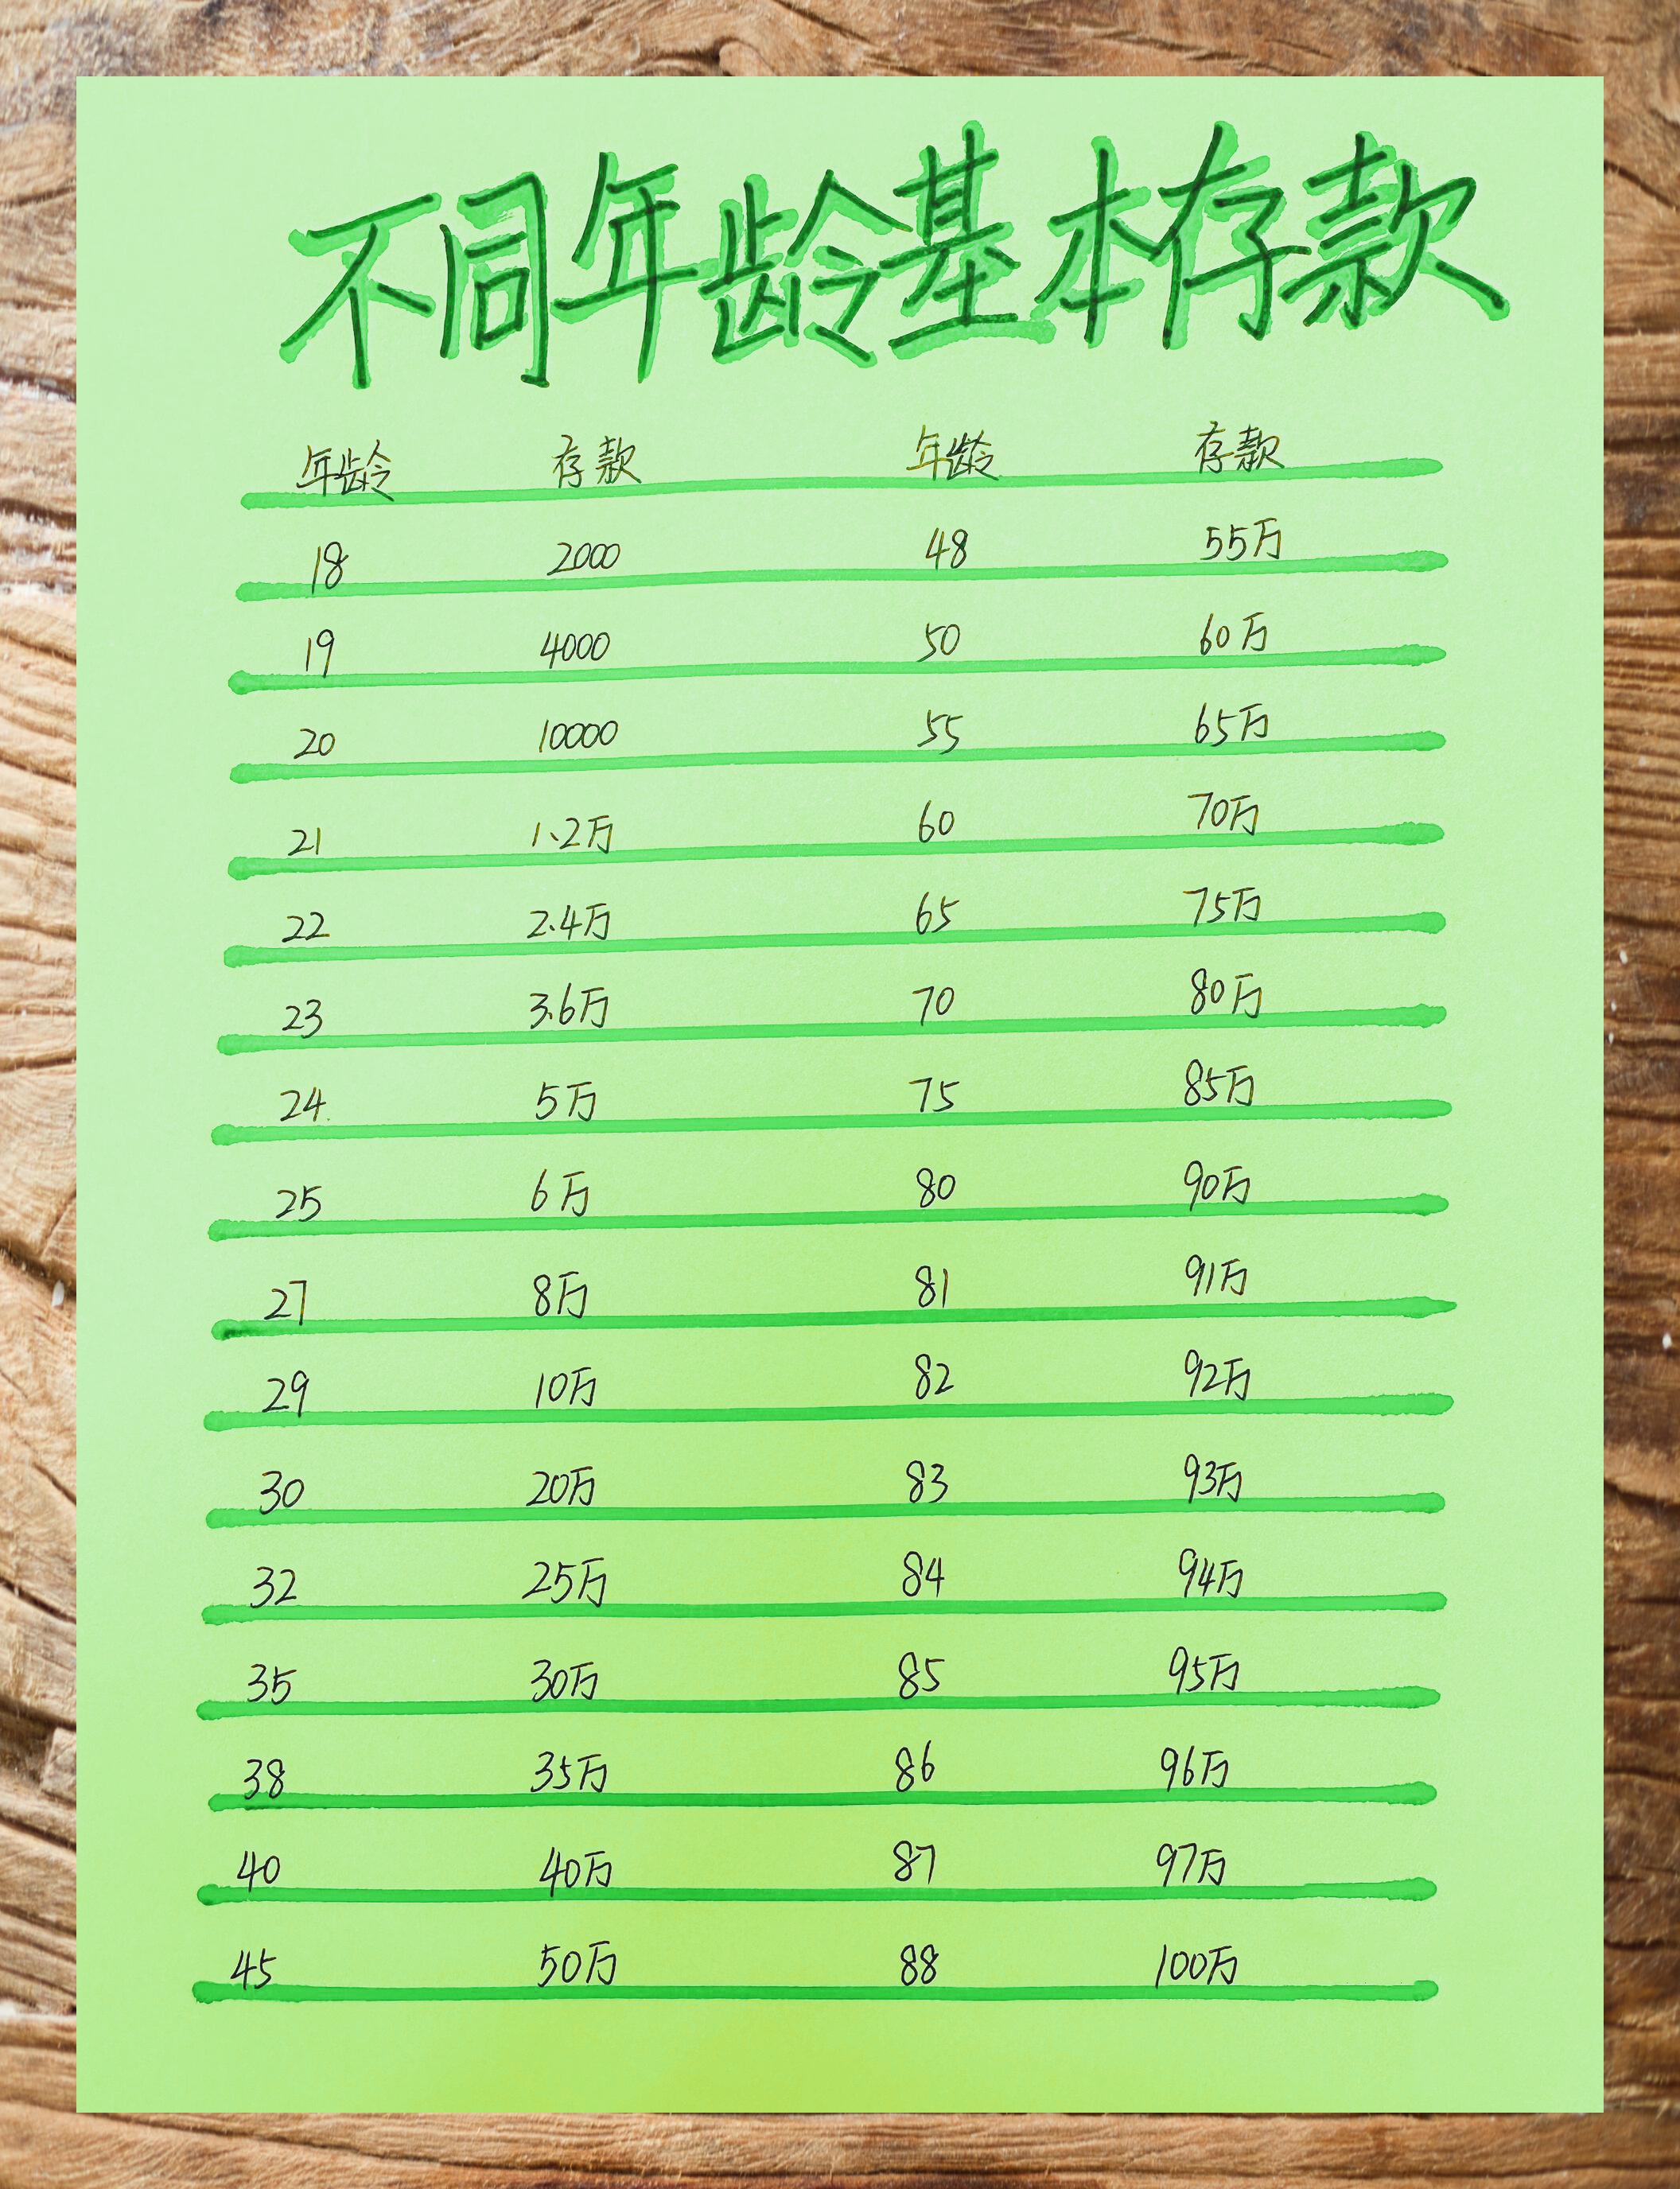 不同年龄基本存款
年龄 存款 年龄 存款
18 2000 48 55万
19 4000 50 60万
20 10000 55 65万
21 1.2万 60 70万
22 2.4万 65 75万
23 3.6万 70 80万
24 5万 75 85万
25 6万 80 90万
27 8万 81 91万
29 10万 82 92万
30 20万 83 93万
32 25万 84 94万
35 30万 85 95万
38 35万 86 96万
40 40万 87 97万
45 50万 88 100万